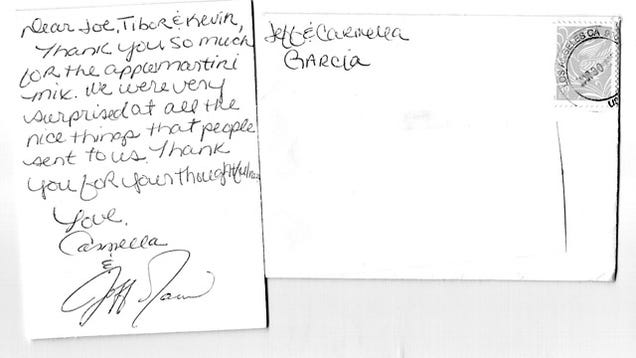 Dear Joe, Tibor & Kevin,
Thank you so much
for the applemartini
mix. We were very
surprised at all the
nice things that people
sent to us. Thank
you for your thoughtfulness
Love,
Carmella
&
Jeff
Jeff & Carmella
Garcia
LOS ANGELES CA
30